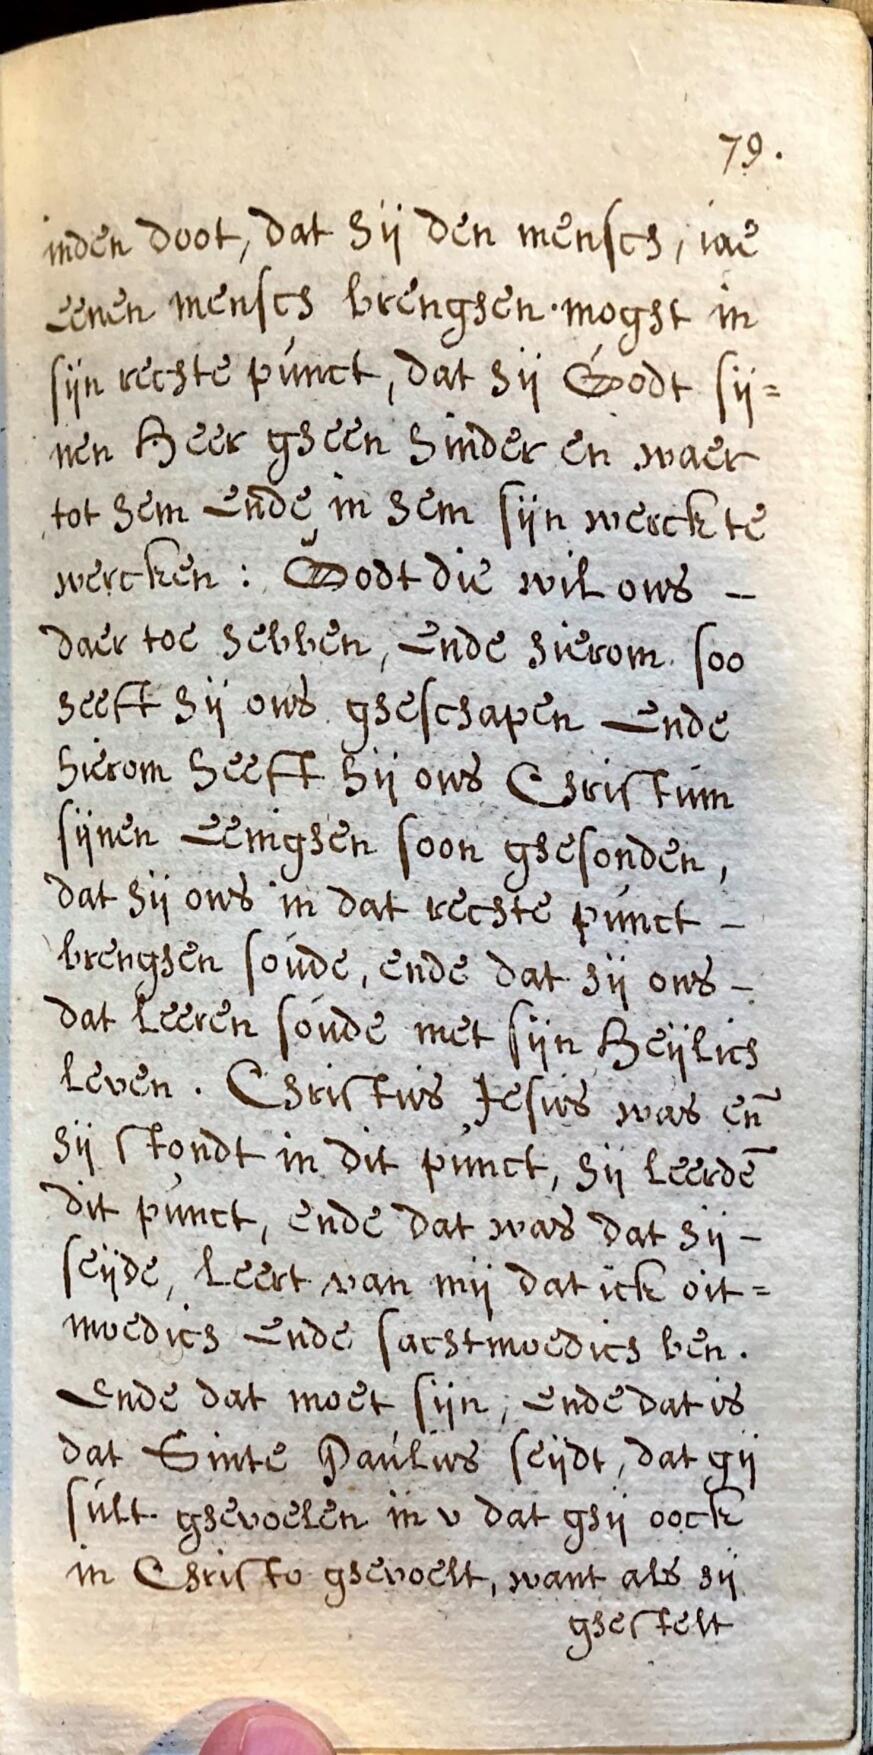 79.
inden doot, dat hij den mensch, iae
eenen mensch brenghen moght in
sijn rechte punct, dat hij Godt sij=
nen Heer gheen hinder en waer
tot hem ende in hem sijn werck te
wercken: Godt die wil ons –
daer toe hebben, ende hierom soo
heeft hij ons gheschapen ende
hierom heeft hij ons Christum
sijnen eenighen soon ghesonden,
dat hij ons in dat rechte punct –
brenghen soude, ende dat hij ons –
dat leeren soude met sijn Heijlich
leven. Christus Jesus was en̄
hij stondt in dit punct, hij leerdē
dit punct, ende dat was dat hij –
seijde, leert van mij dat ick oit=
moedich ende sachtmoedich ben.
Ende dat moet sijn, ende dat is
dat Sinte Paulus seijdt, dat gij
sult ghevoelen in v dat ghij oock
in Christo ghevoelt, want als hij
ghestelt